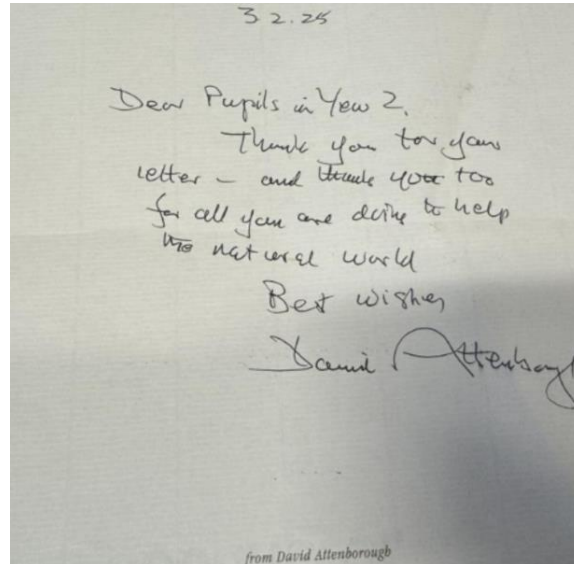 3.2.25
Dear Pupils in Year 2.
Thank you for your
letter – and thank you too
for all you are doing to help
the natural world
Best wishes
David Attenborough
from David Attenborough